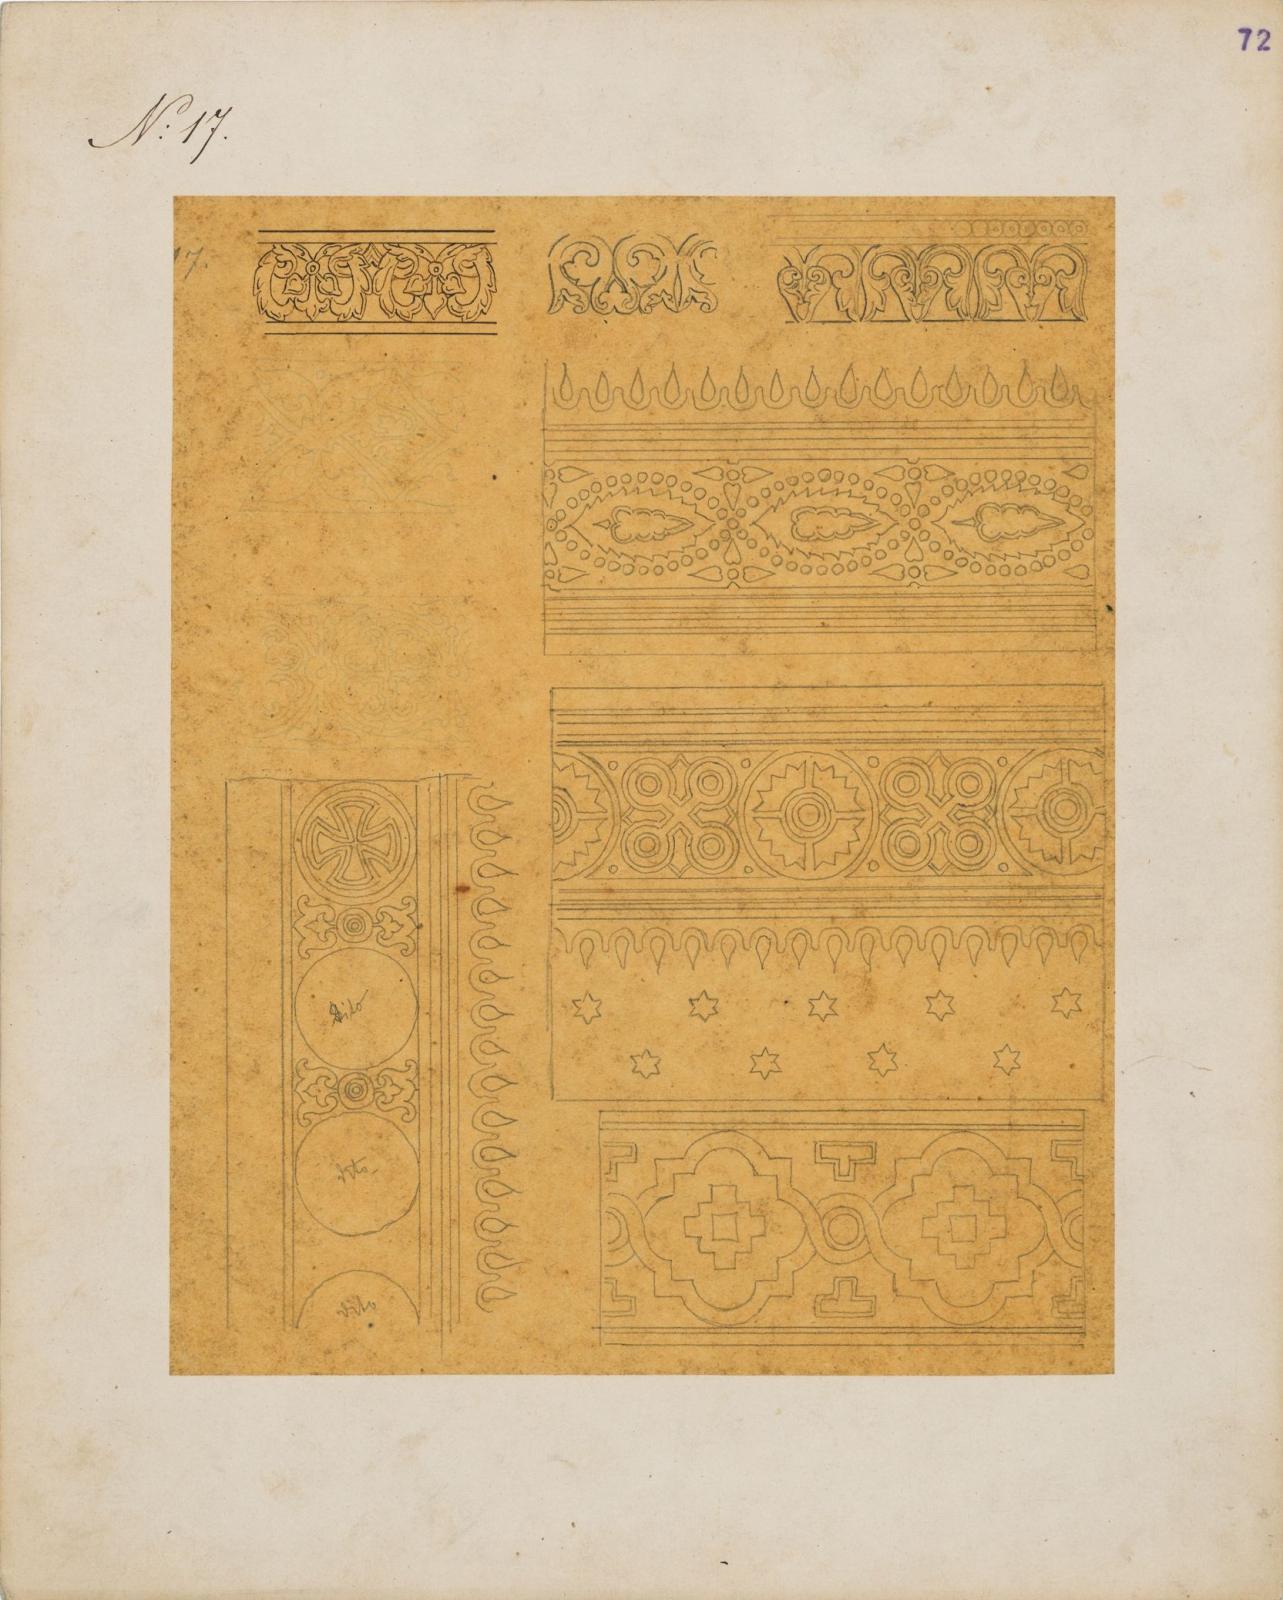 72
N: 17.
17.
dito
dito
dito